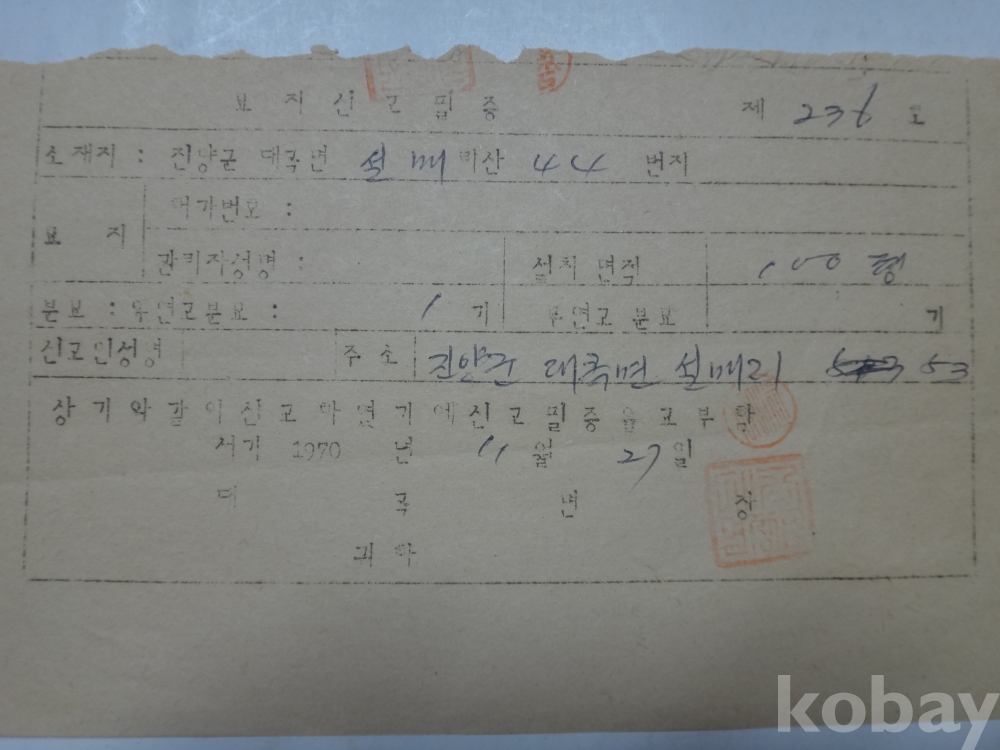 묘지신고필증 제 236 호
소재지 : 진양군 대곡면 설매리산 44 번지
묘 지
허가번호 :
관리자성명 : 설치 면적 100 평
분묘 : 유연고분묘 : 1 기 무연고 분묘 기
신고인성명 주소 진양군 대곡면 설매리 53
상기와같이신고하였기에신고필증을교부함
서기 1970 년 11 월 27 일
대 곡 면 장
귀하
kobay